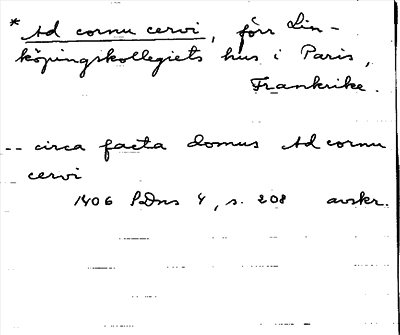 * Ad cornu cervi, förr Lin-
köpingskollegiets hus i Paris,
Frankrike.
-- circa facta domus Ad cornu
cervi
1406 SDns 4, s. 208 avskr.